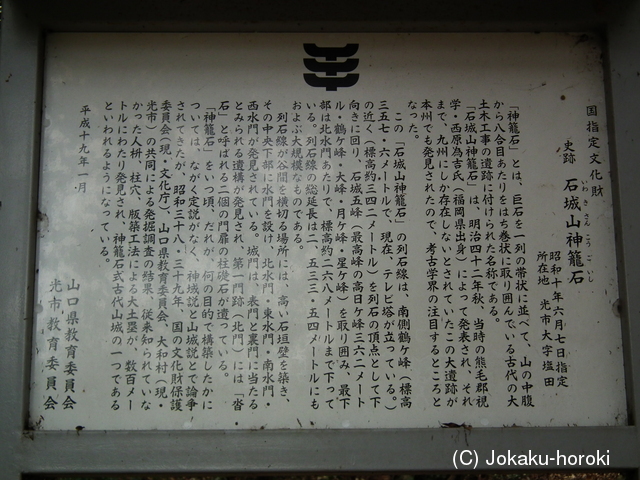 国指定文化財
史跡 石城山神籠石
いわ き さん こう ご いし
昭和十年六月七日指定
所在地 光市大字塩田
「神籠石」とは、巨石を一列の帯状に並べて、山の中腹
から八合目あたりをはち巻状に取り囲んでいる古代の大
土木工事の遺跡に付けられた名称である。
「石城山神籠石」は、明治四十二年秋、当時の熊毛郡視
学・西原為吉氏（福岡県出身）によって発表され、それ
まで、九州にしか存在しないとされていたこの大遺跡が
本州でも発見されたので、考古学界の注目するところと
なった。
この「石城山神籠石」の列石線は、南側鶴ヶ峰（標高
三五七・六メートルで、現在、テレビ塔が立っている。）
の近く（標高約三四二メートル）を列石の頂点として下
向きに回り、石城五峰（最高峰の高日ヶ峰三六二メート
ル・鶴ヶ峰・大峰・月ヶ峰・星ヶ峰）を取り囲み、最下
部は北水門あたりで、標高約二六八メートルまで下って
いる。列石線の総延長は二、五三三・五四メートルにも
およぶ大規模なものである。
列石線が谷間を横切る場所には、高い石垣壁を築き、
その中央下部に水門を設け、北水門・東水門・南水門・
西水門が発見されている。城門は、表門と裏門に当たる
とみられる遺構が発見され、第一門跡（北門）には「沓
石」と呼ばれる二個の門扉の柱礎石が遺っている。
「神籠石」をいつ頃、だれが、何の目的で構築したかに
ついては、ながく定説がなく、神域説と山城説とで論争
されてきたが、昭和三十八・三十九年、国の文化財保護
委員会（現・文化庁）、山口県教育委員会、大和村（現・
光市）の共同による発掘調査の結果、従来知られていな
かった人枡、柱穴、版築工法による大土塁が、数百メー
トルにわたり発見され、神籠石式古代山城の一つである
といわれるようになっている。
平成十九年一月
山口県教育委員会
光市教育委員会
(C) Jokaku-horoki